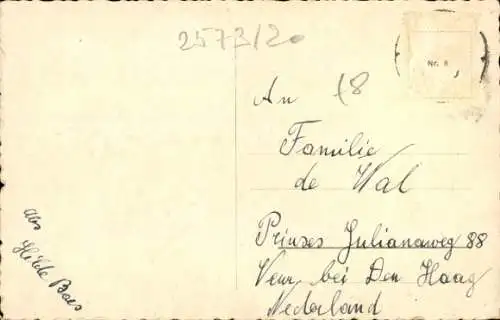 2573/20
Nr. 8
18
An
Familie
de Wal
Prinses Julianaweg 88
Veur bei Den Haag
Nederland
Abs
Hilde Baes